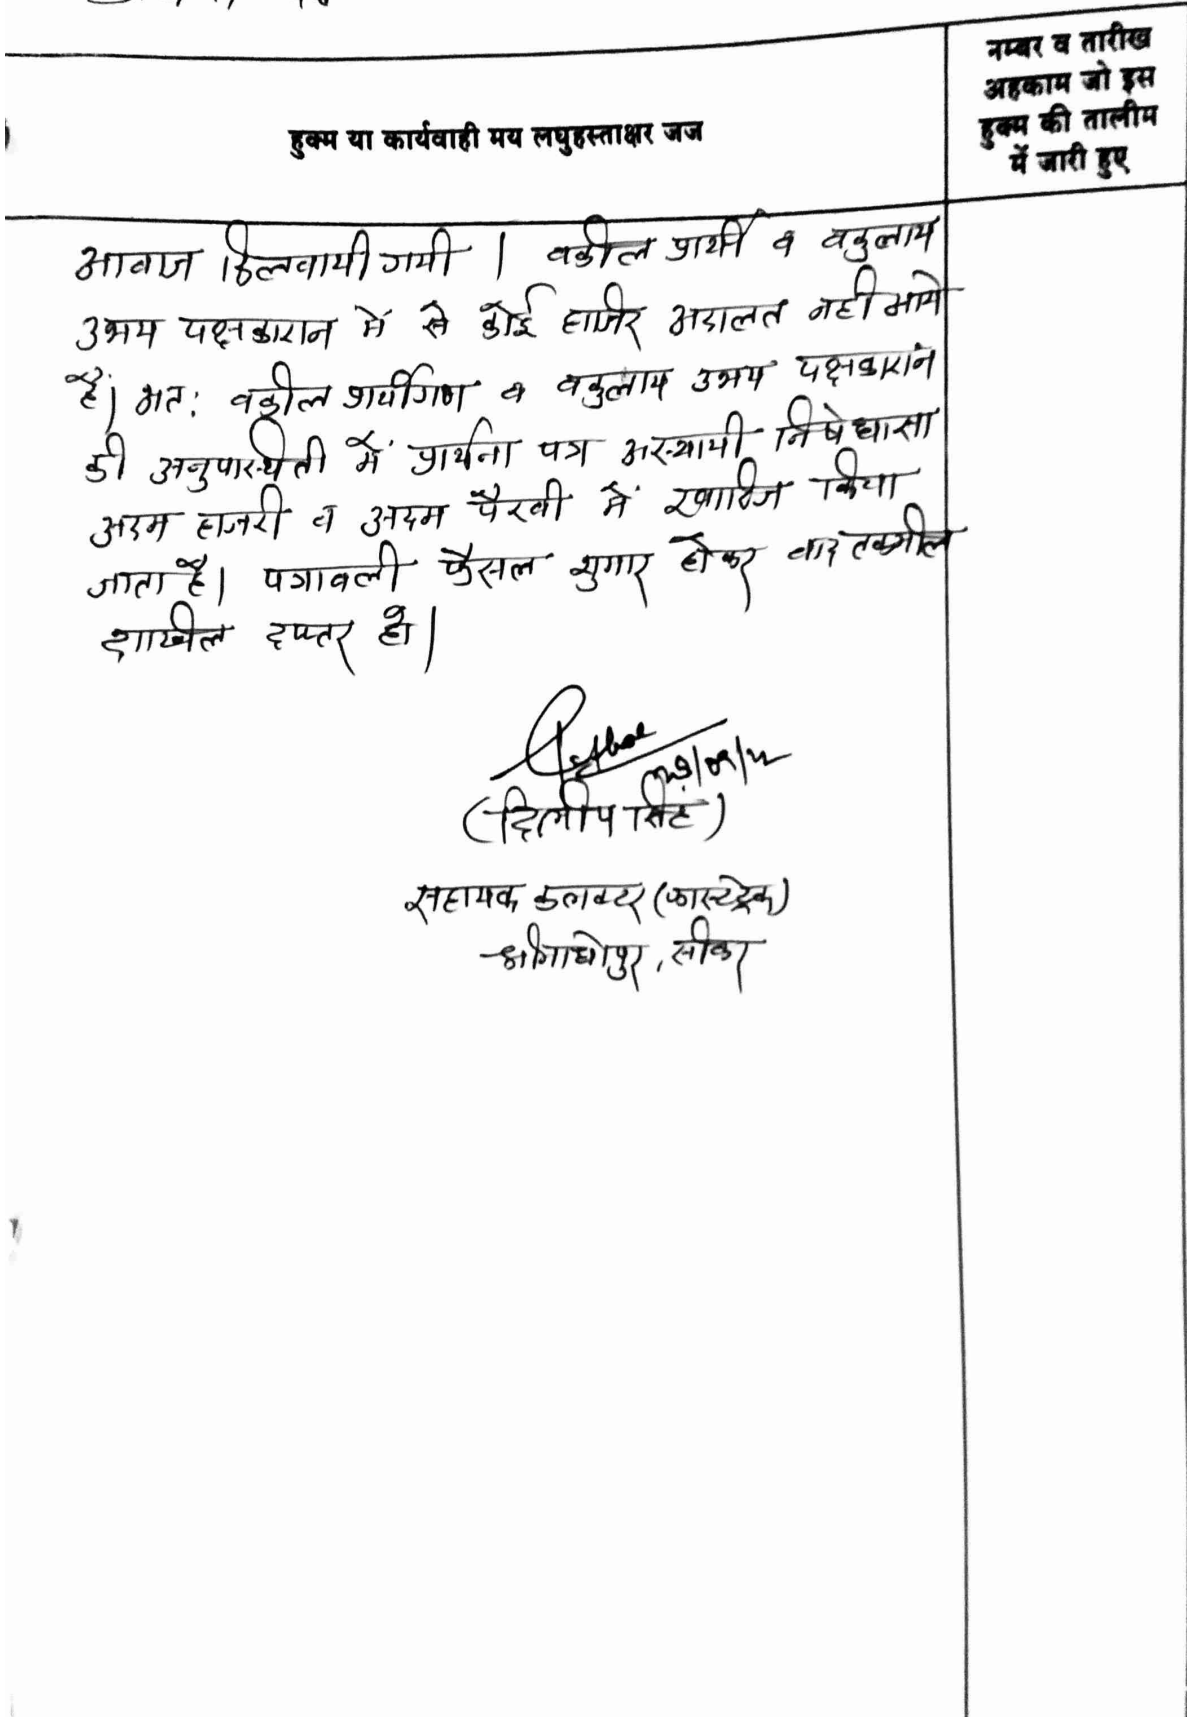 हुक्म या कार्यवाही मय लघुहस्ताक्षर जज
नम्बर व तारीख
अहकाम जो इस
हुक्म की तालीम
में जारी हुए
आवाज दिलवायी गयी । वकील प्रार्थी व वकुलाय
उभय पक्षकारान में से कोई हाजिर अदालत नही आये
हैं। अतः वकील प्रार्थीगण व वकुलाय उभय पक्षकारान
की अनुपस्थिती में प्रार्थना पत्र अस्थायी निषेधाज्ञा
अदम हाजरी व अदम पैरवी में खारिज किया
जाता है। पत्रावली फैसल शुमार होकर बाद तकमील
दाखिल दफ्तर हो।
(दिलीप सिंह)
सहायक कलक्टर (फास्टट्रेक)
श्रीमाधोपुर, सीकर